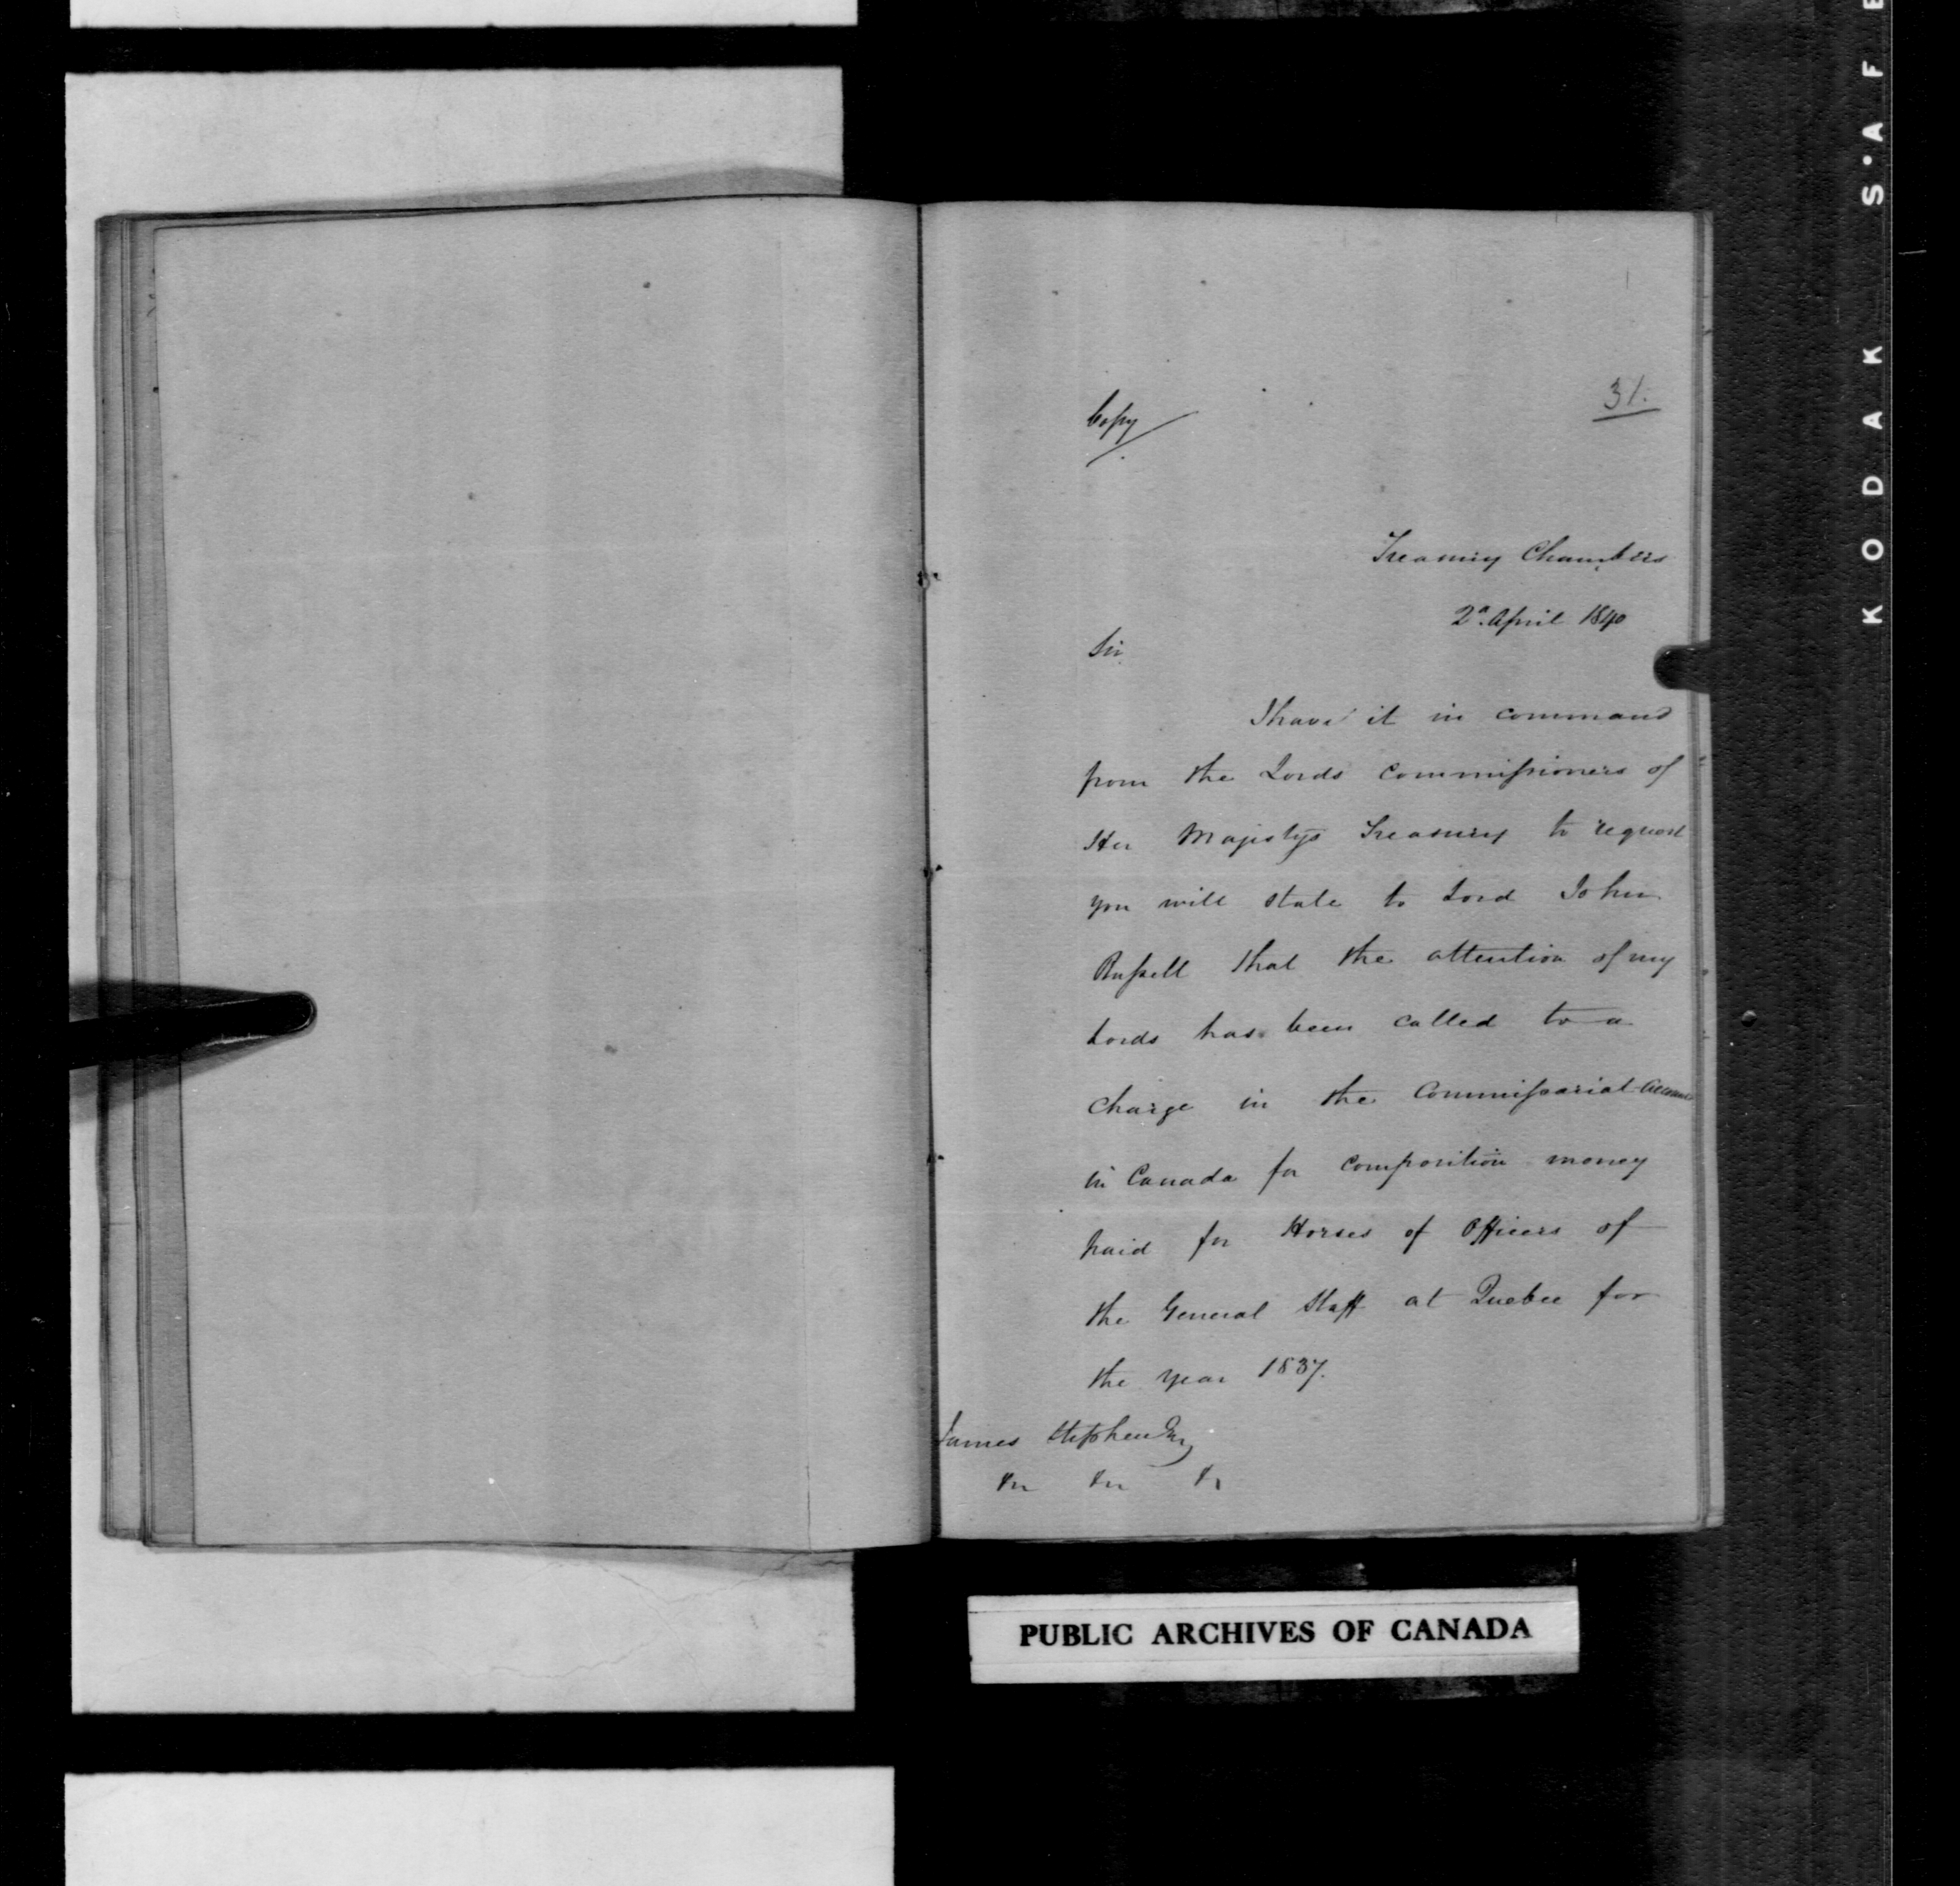 Copy
31.
Treasury Chambers
2d. April 1840
Sir
I have it in command
from the Lords Commissioners of
Her Majestys Treasury to request
you will state to Lord John
Russell that the attention of my
Lords has been called to a
charge in the Commissariat Accounts
in Canada for composition money
paid for Horses of Officers of
the General Staff at Quebec for
the year 1837.
James Stephen Esqr
PUBLIC ARCHIVES OF CANADA
KODAK S·AFE